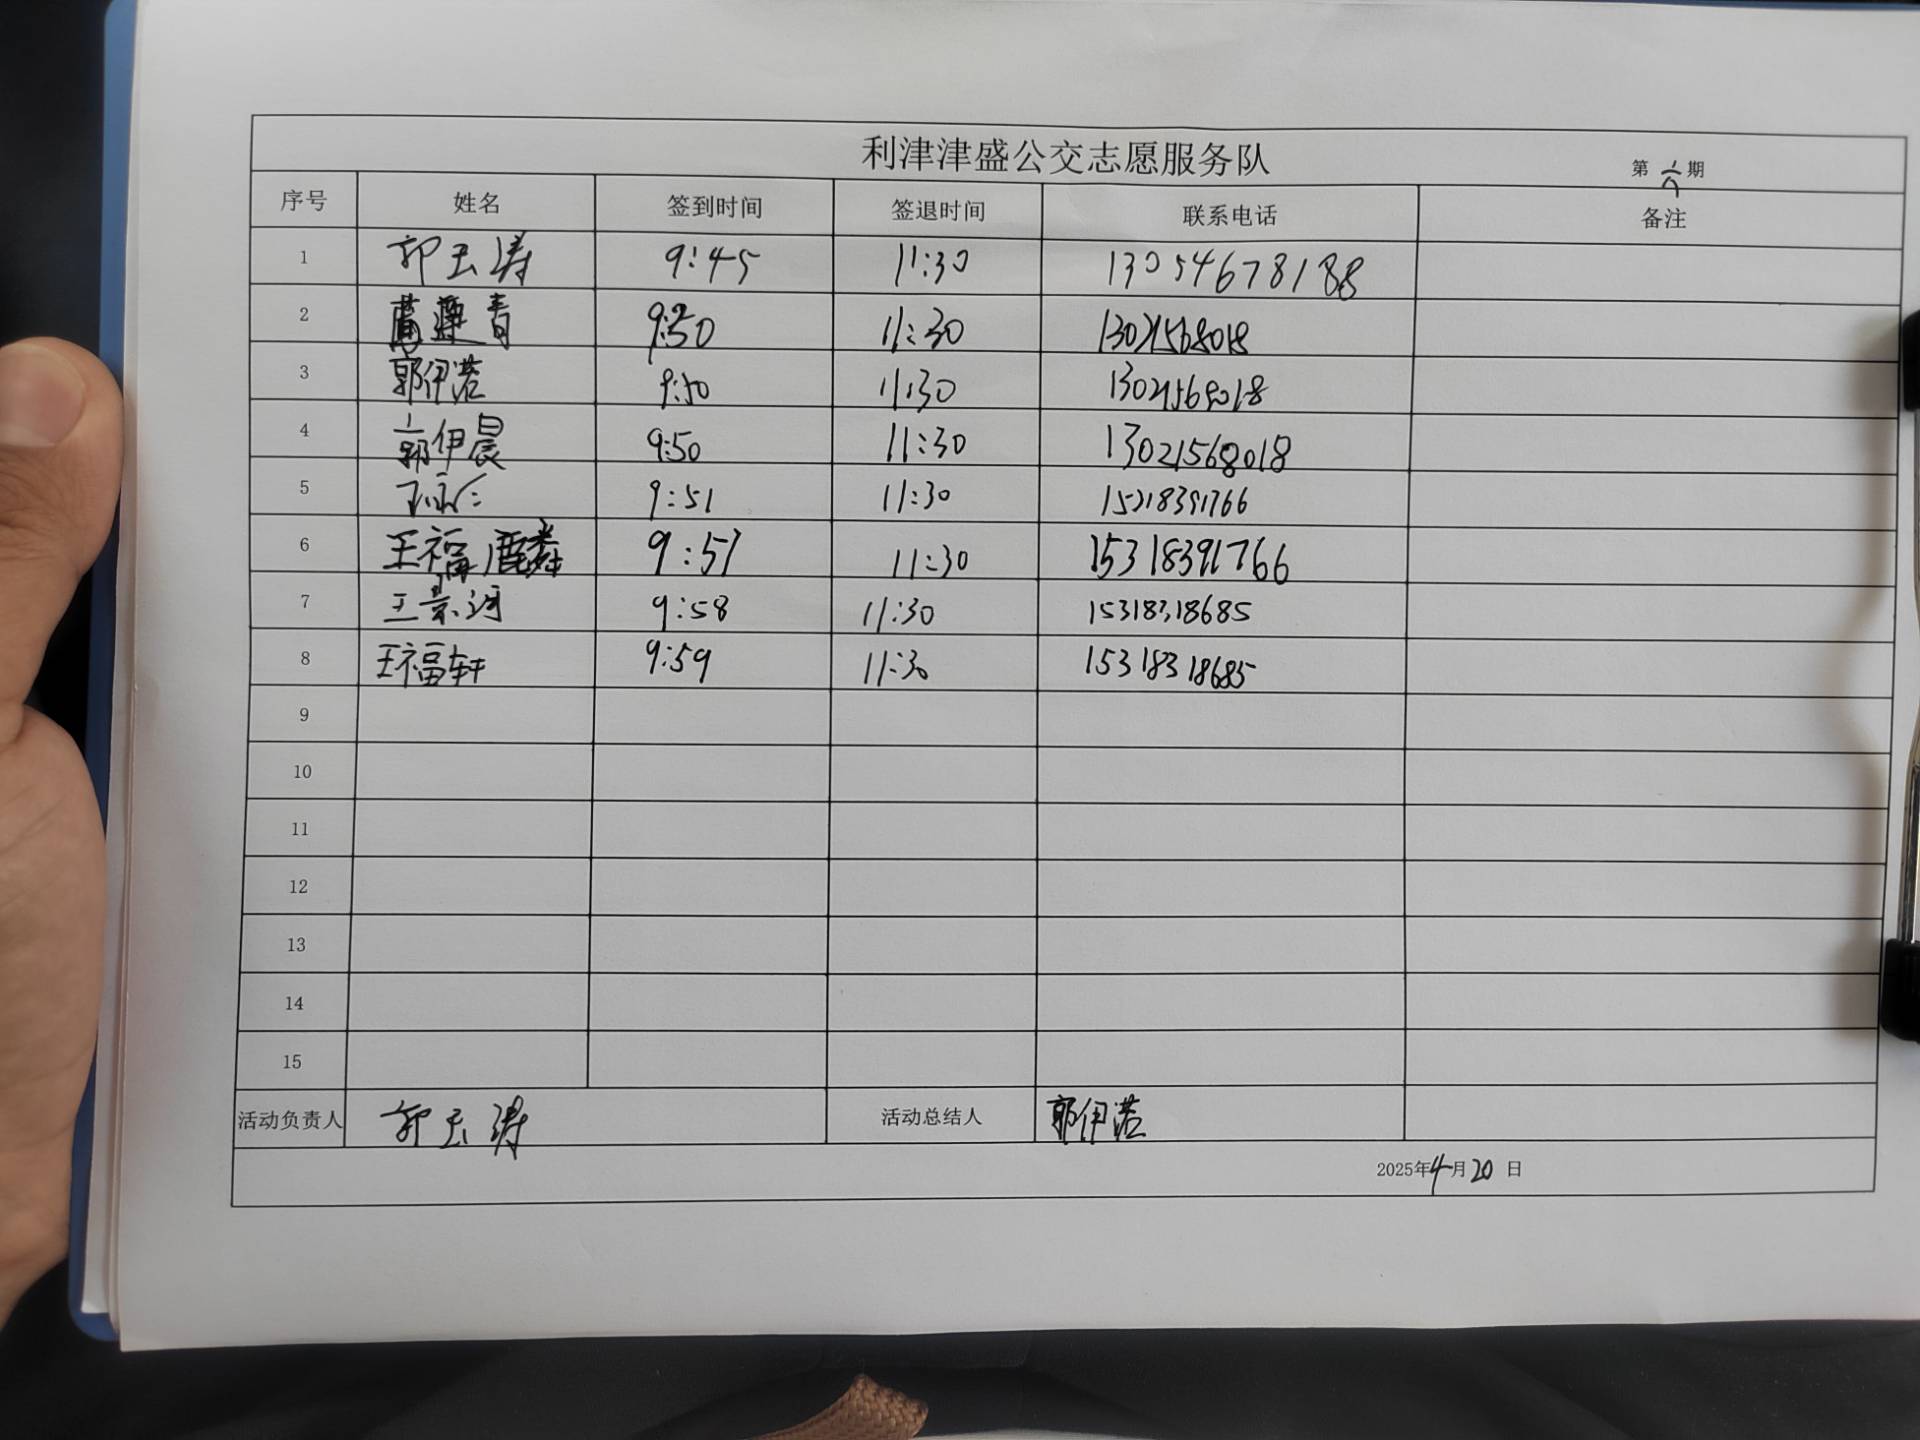 利津津盛公交志愿服务队 第六期
序号 姓名 签到时间 签退时间 联系电话 备注
1 郭玉涛 9:45 11:30 13054678188
2 董莲青 9:50 11:30 13021568018
3 郭伊诺 9:50 11:30 13021568018
4 郭伊晨 9:50 11:30 13021568018
5 9:51 11:30 15318391766
6 王福麟 9:51 11:30 15318391766
7 王景河 9:58 11:30 15318318685
8 王福轩 9:59 11:30 15318318685
9
10
11
12
13
14
15
活动负责人 郭玉涛 活动总结人 郭伊诺
2025年4月20日